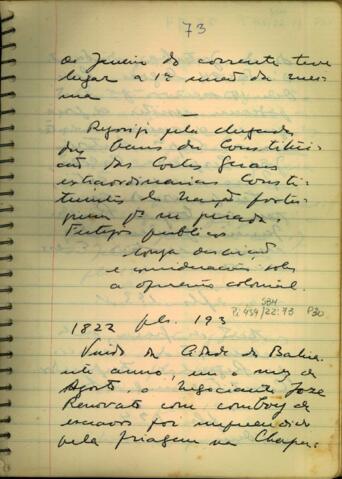 73
de Janeiro do corrente teve
lugar a 1ª da mes-
ma
Regosijo pela chegada
das Bases da Constitui-
ção das Cortes Gerais
extraordinarias Consti-
tuintes da nação portu-
gueza
Festejos publicos
Longa descrição
e considerações sobre
a opressão colonial.
SBH
Pi 459/22:73 P30
1822 fls. 193
Vindo da Cidade da Bahia
neste anno, em o mez de
Agosto o negociante Joze
Renovato com comboy de
escravos por
pela na Chapa-